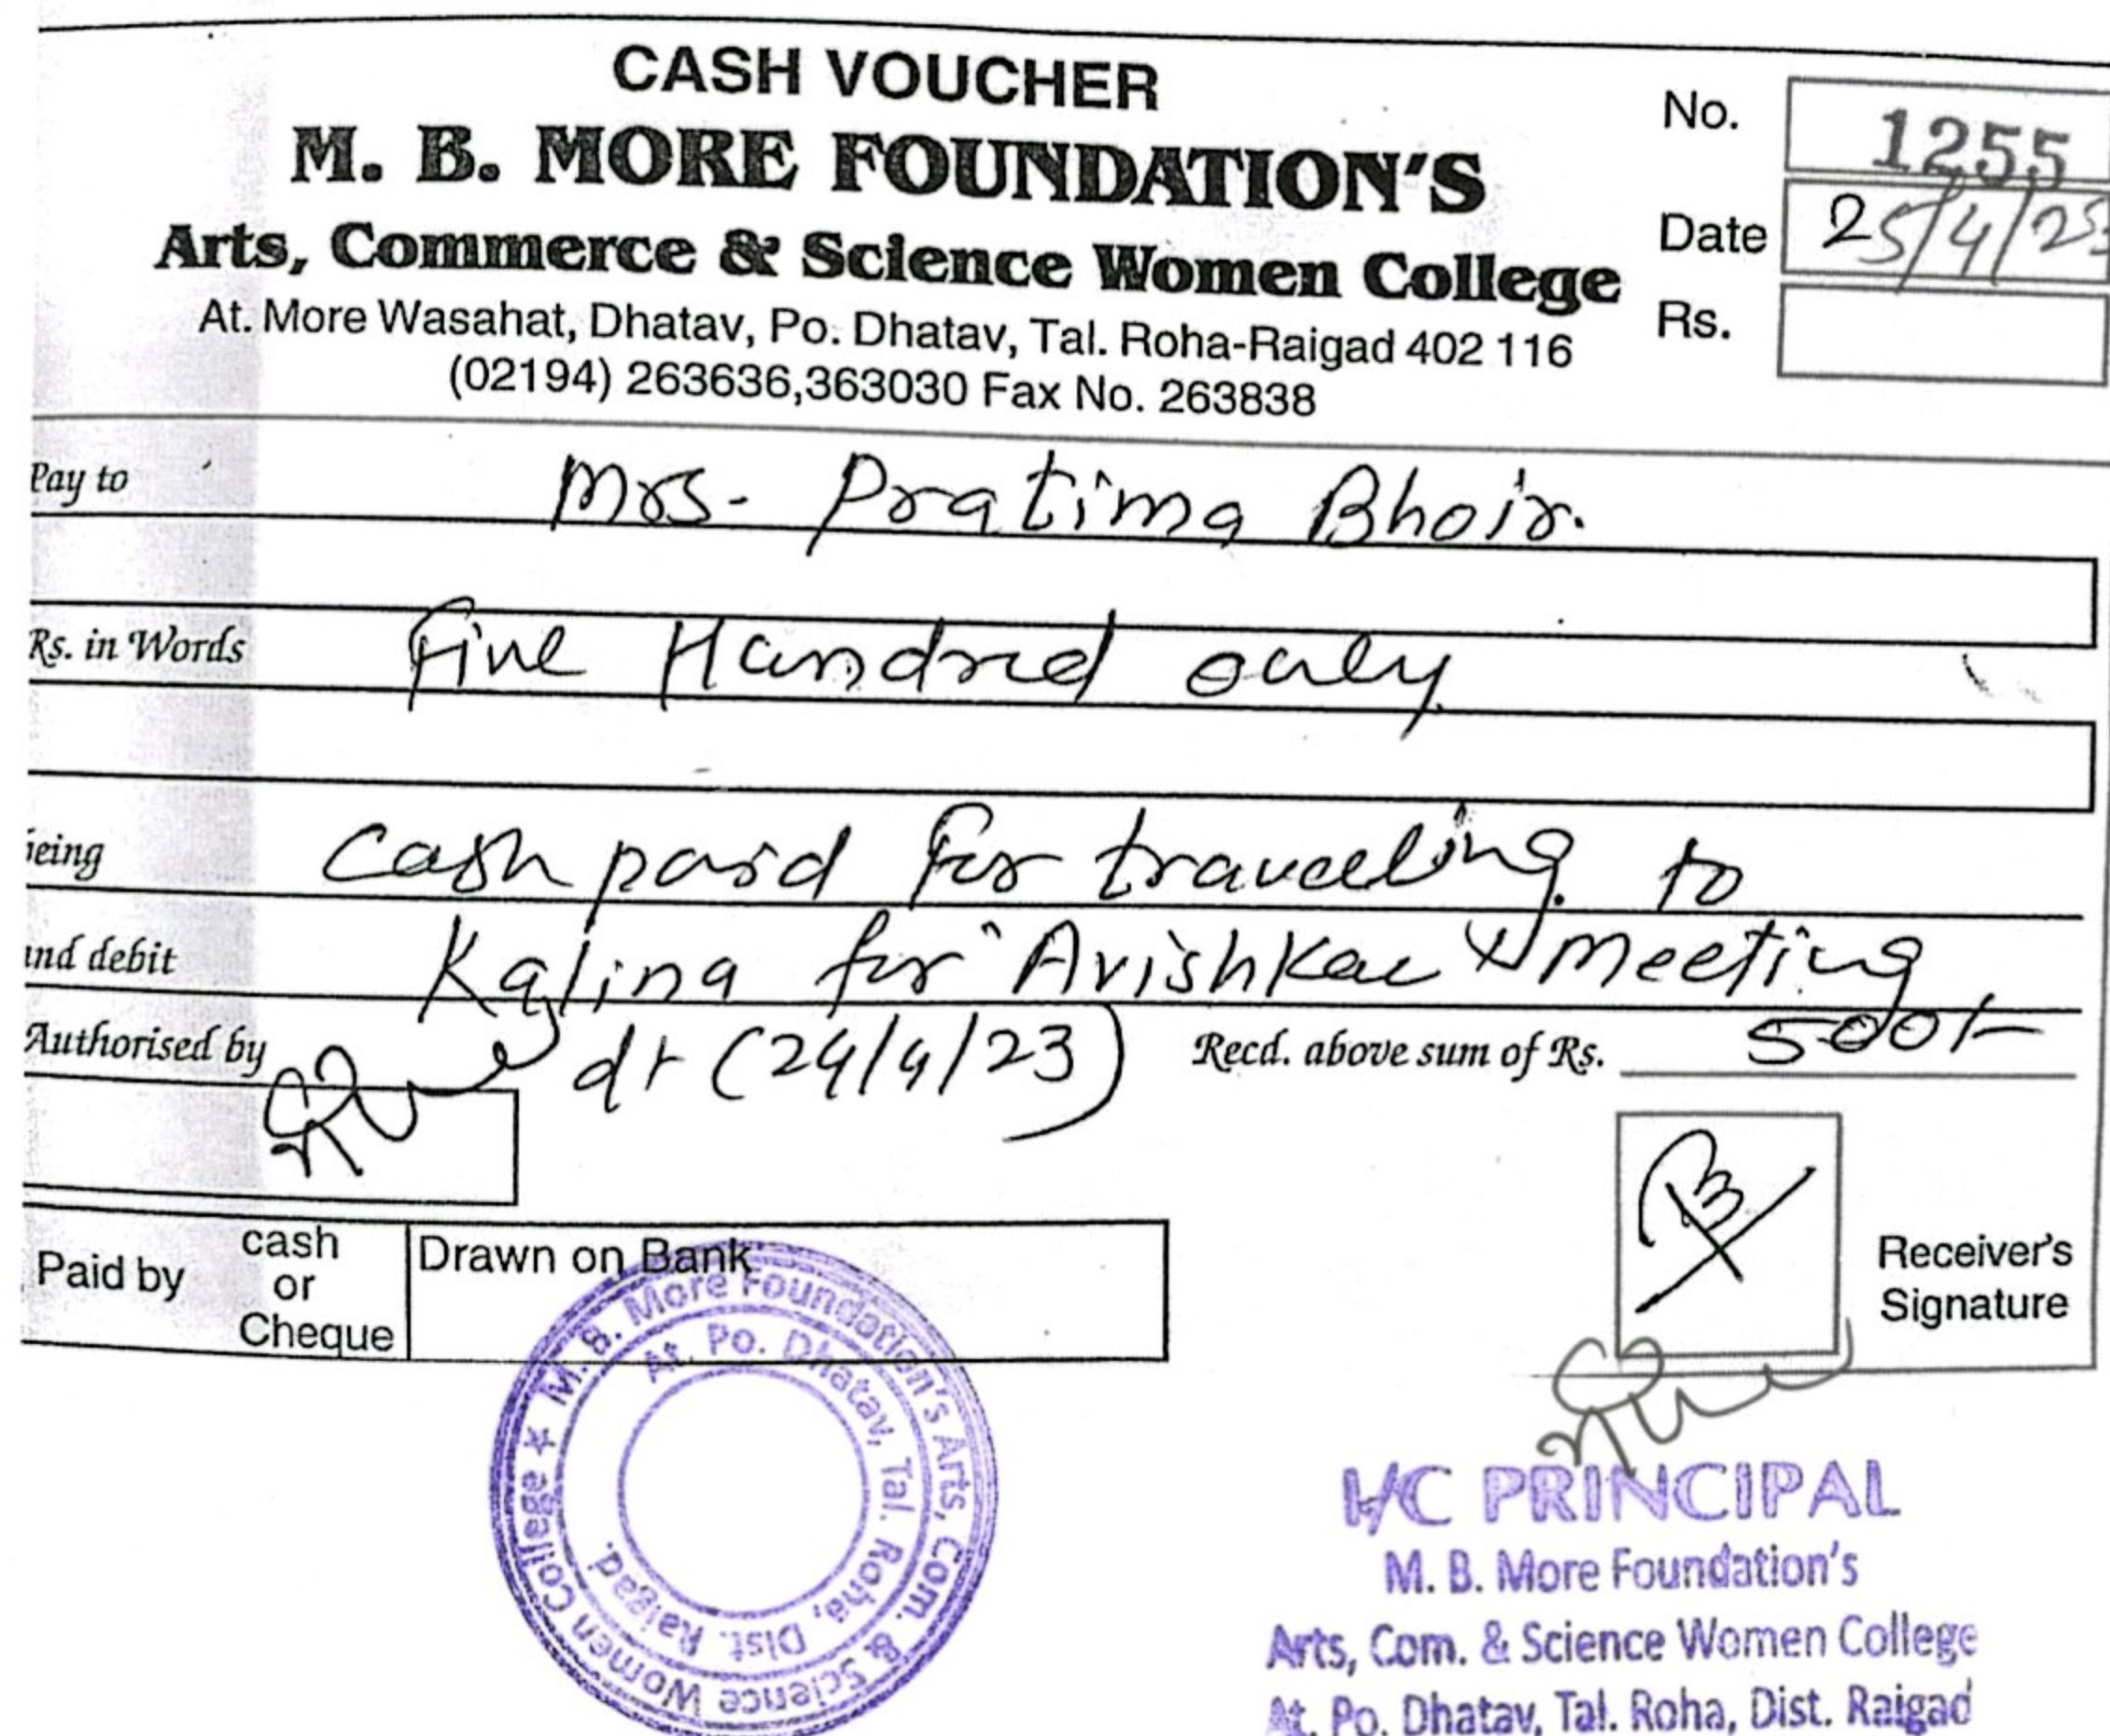 CASH VOUCHER
M. B. MORE FOUNDATION'S
Arts, Commerce & Science Women College
At. More Wasahat, Dhatav, Po. Dhatav, Tal. Roha-Raigad 402 116
(02194) 263636,363030 Fax No. 263838
No. 1255
Date 25/4/23
Rs.
Pay to Mrs. Pratima Bhoir.
Rs. in Words Five Hundred only
being Cash paid for travelling to
and debit Kalina for "Avishkar" Meeting
Authorised by dt (24/4/23) Recd. above sum of Rs. 500/-
Paid by cash or Cheque
Drawn on Bank
Receiver's
Signature
M. B. More Foundation's Arts, Com. & Science Women College ★
At. Po. Dhatav, Tal. Roha, Dist. Raigad.
I/C PRINCIPAL
M. B. More Foundation's
Arts, Com. & Science Women College
At. Po. Dhatav, Tal. Roha, Dist. Raigad